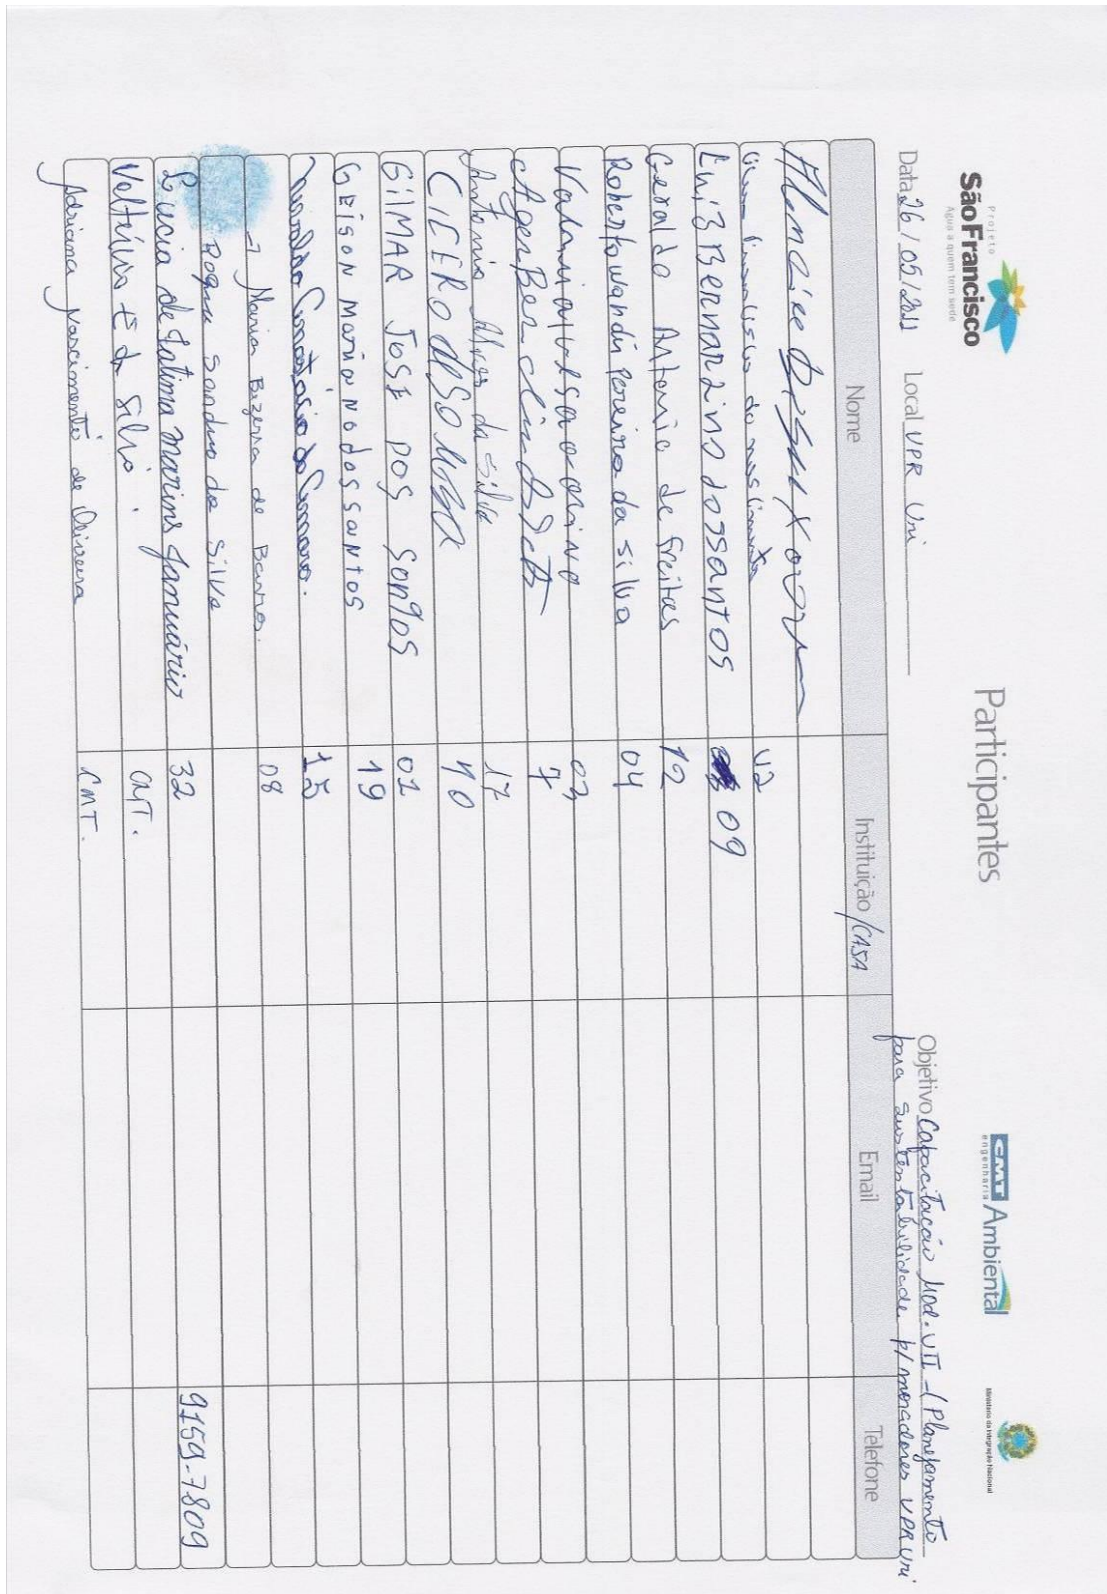 Projeto
São Francisco
Água a quem tem sede
Participantes
CMT Ambiental
engenharia
Ministério da Integração Nacional
Data 26 / 05 / 2011 Local VPR Uri
Objetivo Capacitação Mod. VII - (Planejamento
para sustentabilidade p/ moradores VPR Uri
Nome Instituição /CASA Email Telefone
do nascimento
Luiz Bernardino dos santos 09
Geraldo Antonio de freitas 12
Roberto wandin pereira da silva 04
03
7
Antonio Alves da Silva 17
CICERO de SOUZA 10
GilMAR JOSE DOS SONTOS 01
GEiSON MARiANO dos sANTOS 19
15
Maria Bezerra de Barros. 08
Sandro da Silva
Lucia de Fatima Marins Januário 32 9159-7809
CMT.
Adriana Nascimento de Oliveira CMT.